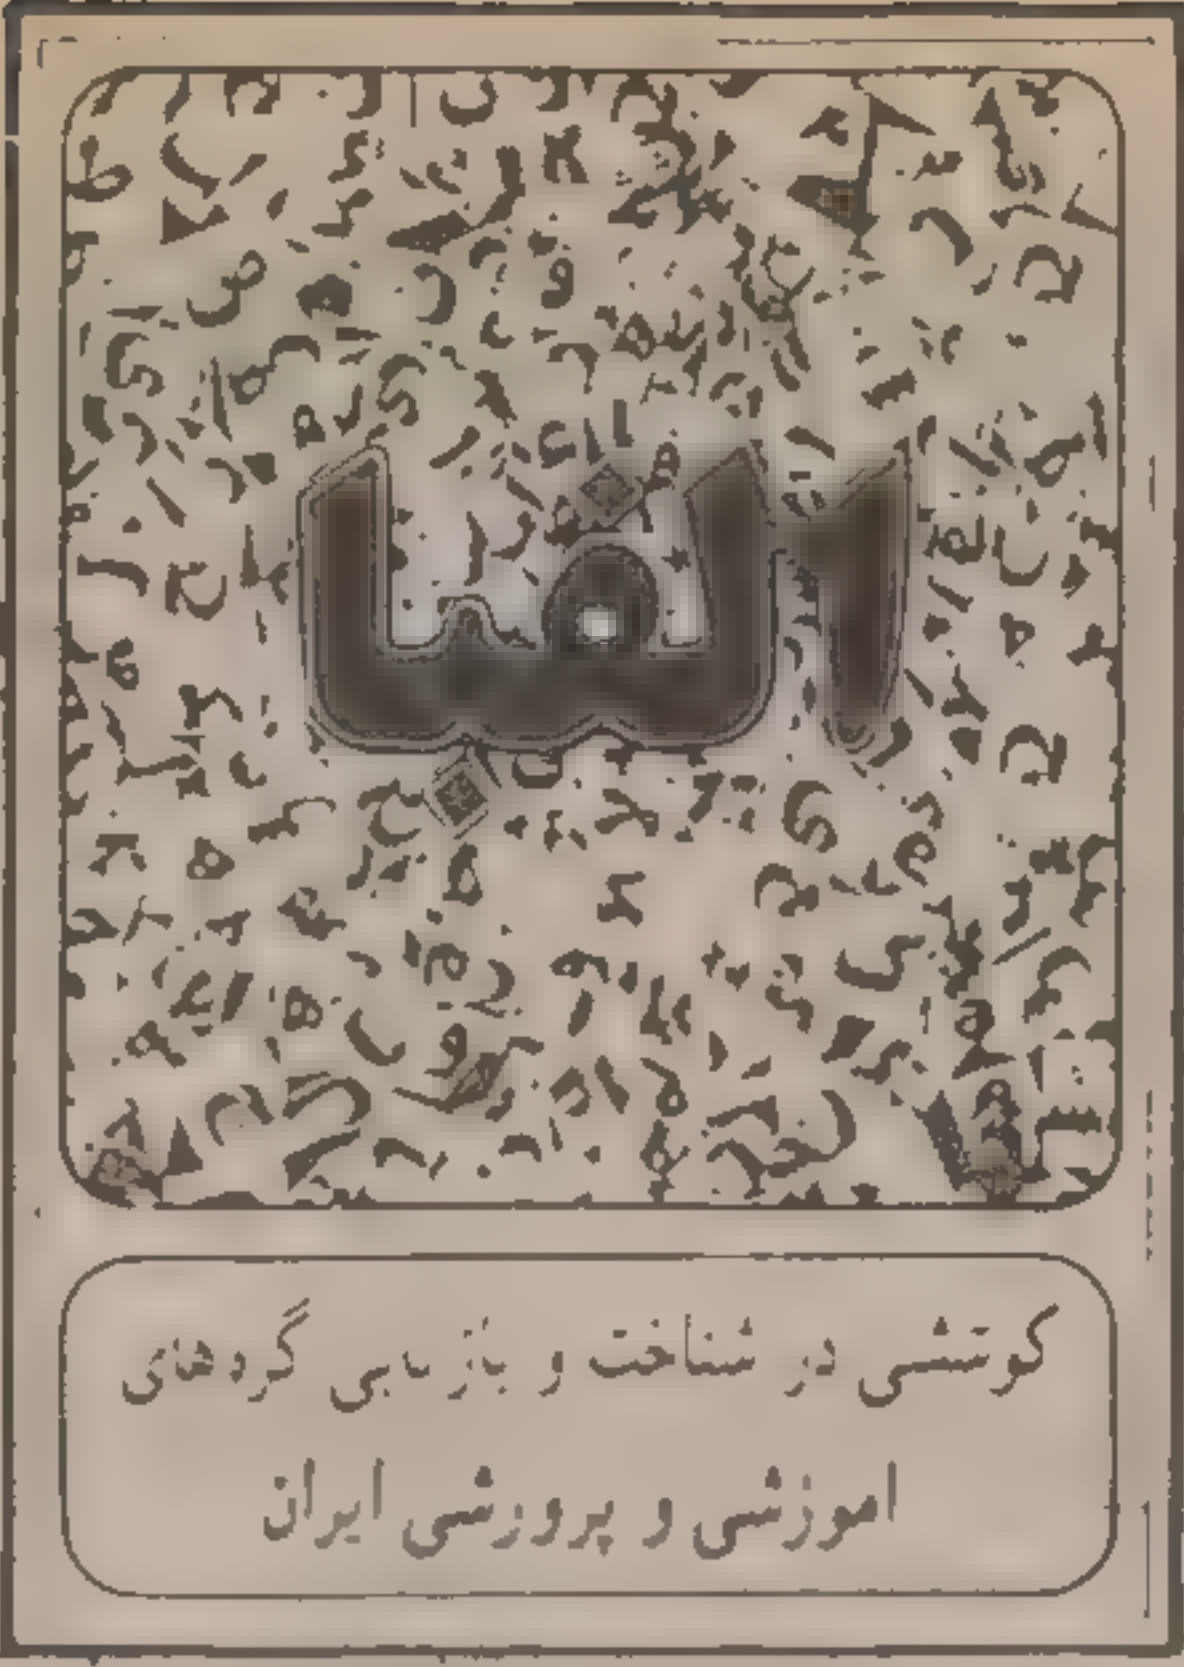 الفبا
کوششی در شناخت و بازیابی گره‌های
اموزشی و پرورشی ایران